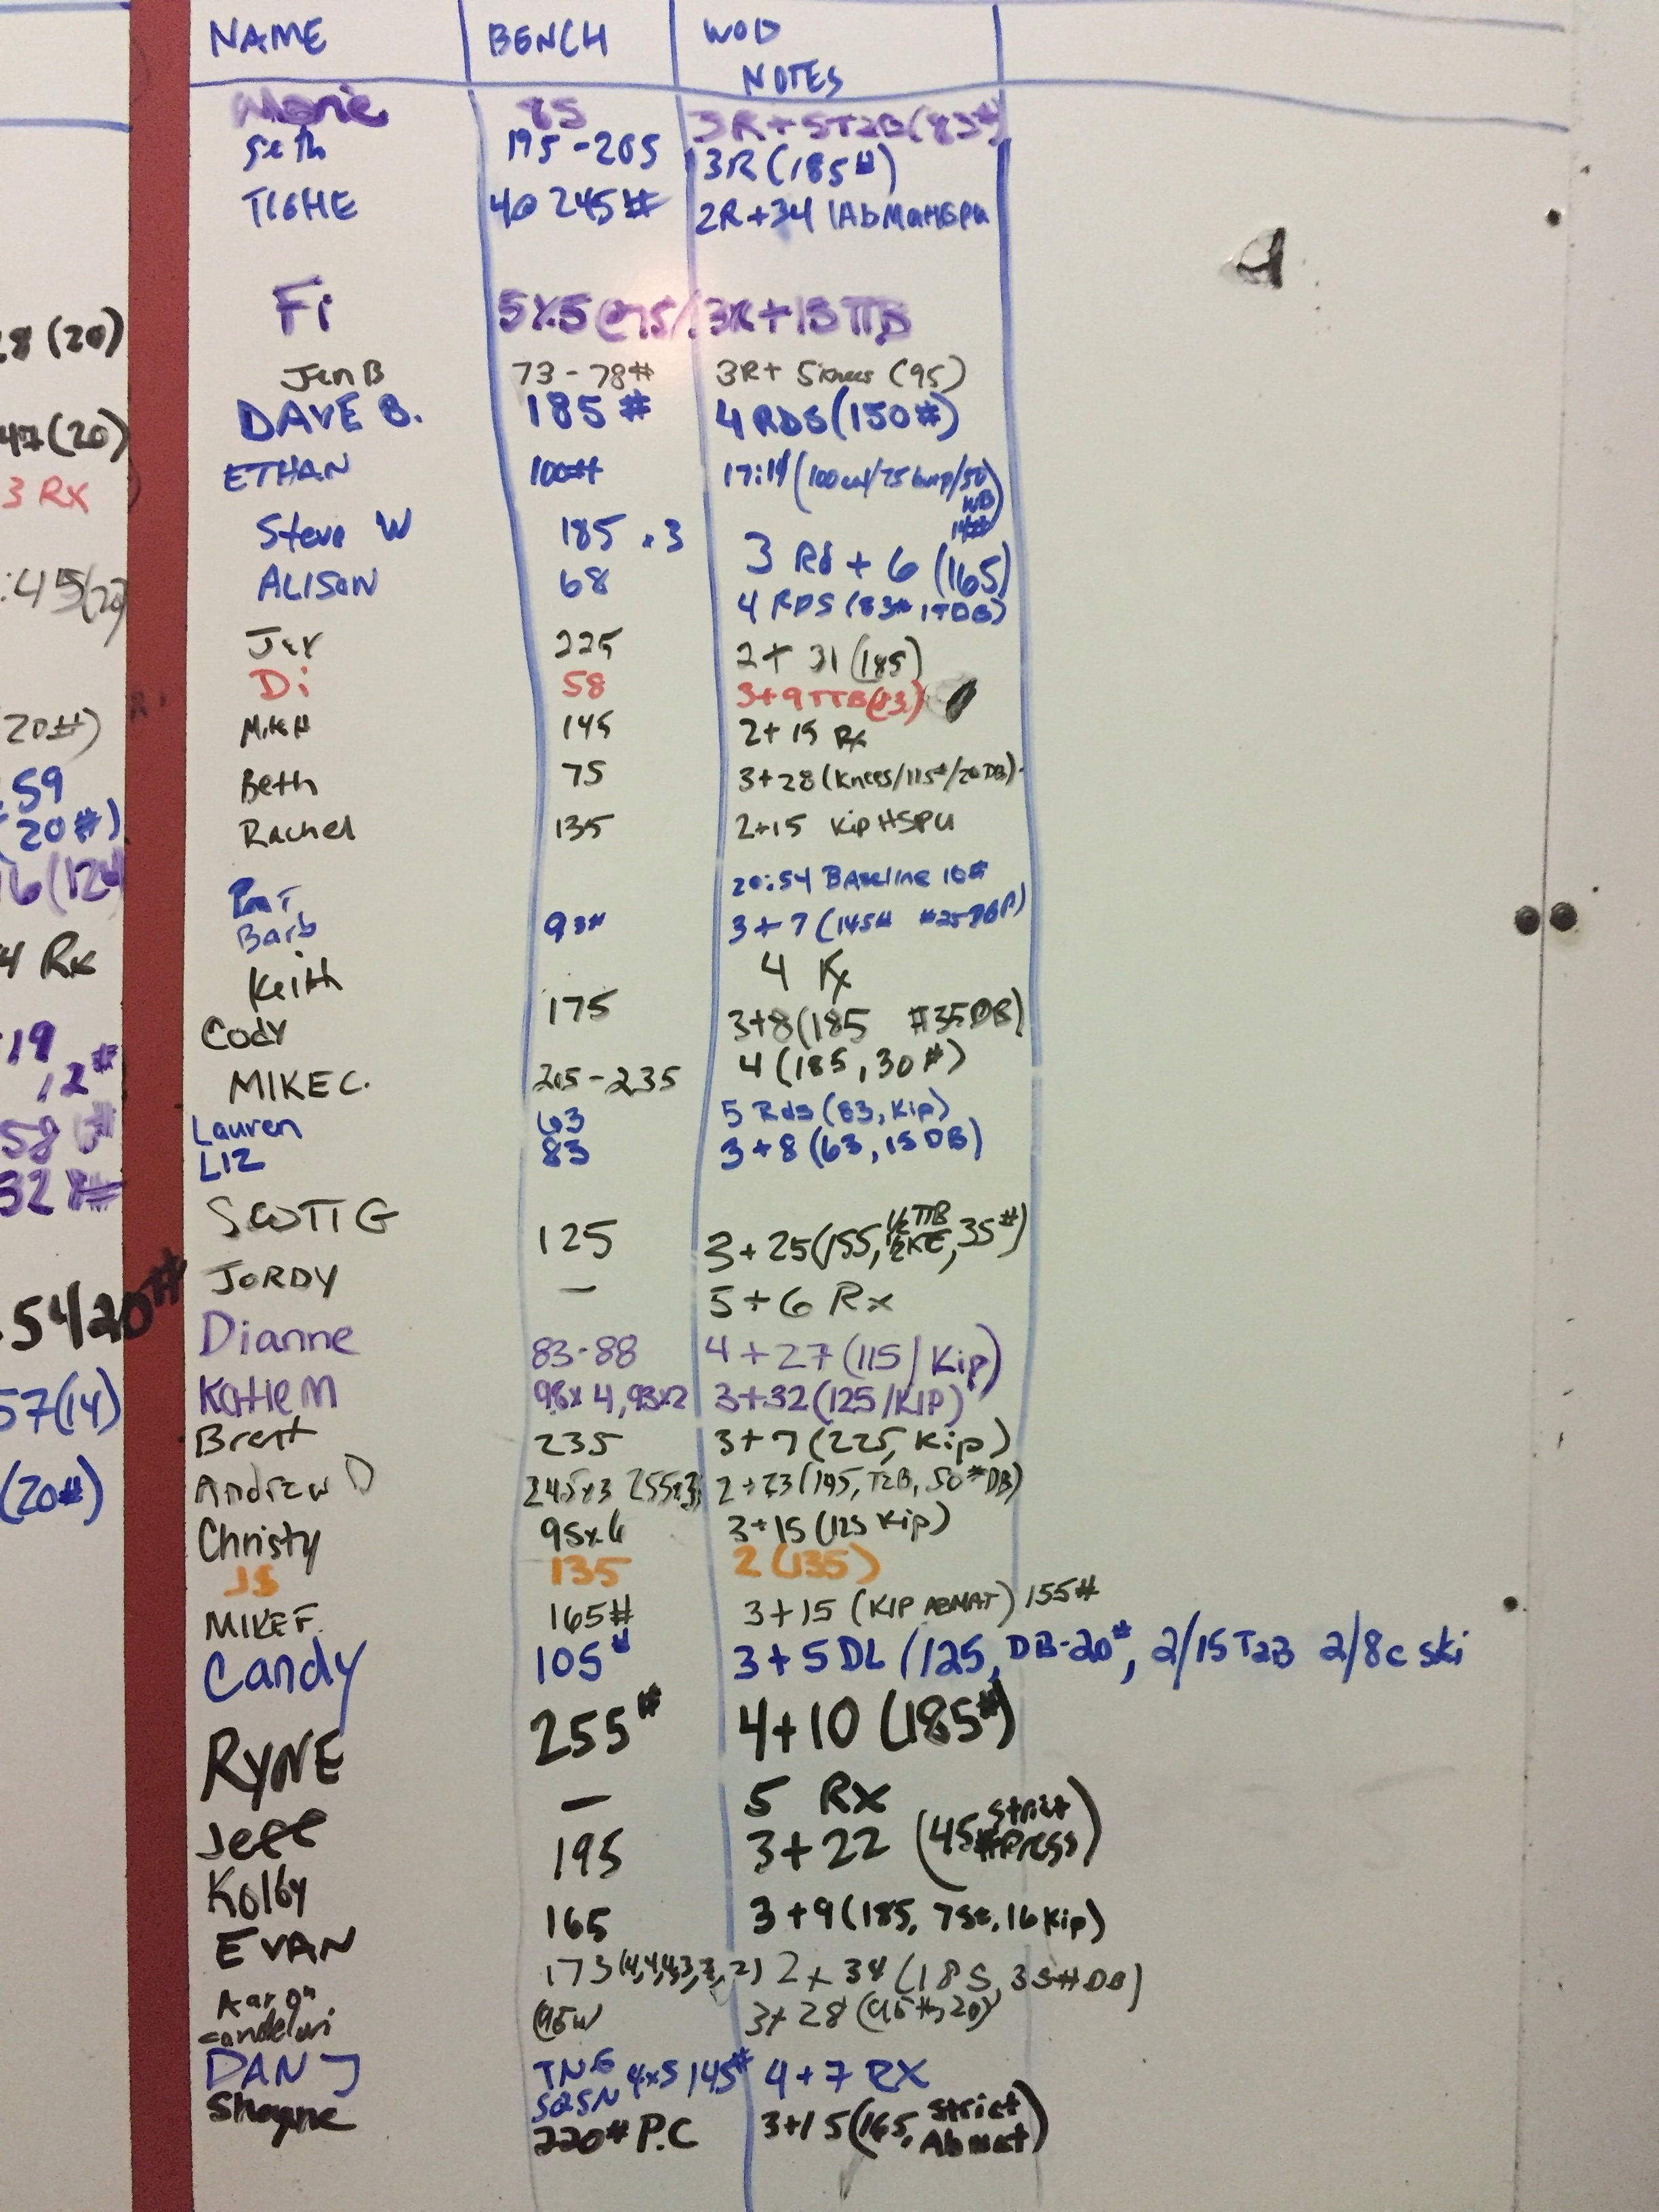 NAME BENCH WOD NOTES
Marie 85 3R+5T2B(83#)
Seth 195-205 3R(185#)
TIGHE 4@ 245# 2R+34 1AbMatHSPU
Fi 5x5@75 3R+13 TTB
Jen B 73-78# 3R+ 5 knees (95)
DAVE B. 185# 4 RDS(150#)
ETHAN 100# 17:14 (100cal/75 burp/50 WB 14#)
Steve W 185 x3 3 Rd + 6 (165)
ALISON 68 4 RDS (83# 15DB)
Jer 225 2+ 31 (185)
Di 58 3+9TTB(83)
Mike H 145 2+15 Rx
Beth 75 3+28 (Knees/115#/20DB)
Rachel 135 2+15 Kip HSPU
Pat 20:54 BAseline 10#
Barb 93# 3+7 (145# #25DB)
Keith 4 Rx
Cody 175 3+8(185 #35DB)
MIKE C. 205-235 4(185,30#)
Lauren 63 5 Rds (83, Kip)
LIZ 83 3+8 (63, 15DB)
SCOTT G 125 3+25(155, 1/2 TTB 1/2 KTE, 35#)
JORDY — 5+6 Rx
Dianne 83-88 4+27(115/Kip)
Katie M 98x4, 93x2 3+32(125/KIP)
Brett 235 3+7(225, Kip)
Andrew D 245x3 255x3 2+23(195, T2B, 50#DB)
Christy 95x6 3+15(125 Kip)
JS 135 2(135)
MIKE F. 165# 3+15 (KIP ABMAT) 155#
Candy 105# 3+5DL (125, DB-20#, 2/15T2B 2/8c ski
RYNE 255# 4+10 (185#)
Jeff — 5 RX
Kolby 195 3+22 (45# strict Press)
EVAN 165 3+9(185, 7st, 16 Kip)
Aaron 173(4,4,4,3,3,2) 2+34(185, 35#DB)
(95#) 3+28 (95#, 20)
DAN J TNG 4x5 145# 4+7 RX
SQSN
Shayne 220# P.C 3+15(165, Strict Abmat)
28 (20)
47(20)
3 RX
:45(20)
20#)
:59
(20#)
16(12#)
4 Rx
19
12#
58
32
5420#
57(14)
(20#)